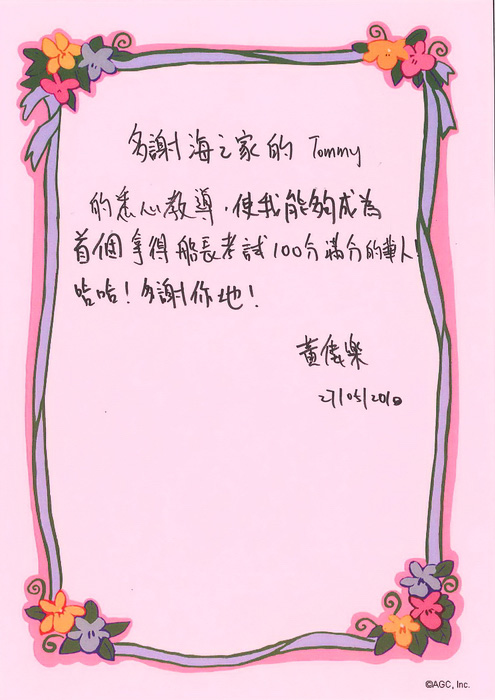 多謝海之家的 Tommy
的悉心教導，使我能夠成為
首個拿得船長考試100分滿分的華人!
哈哈！多謝你地！
黃儀樂
27/05/2010
©AGC, Inc.